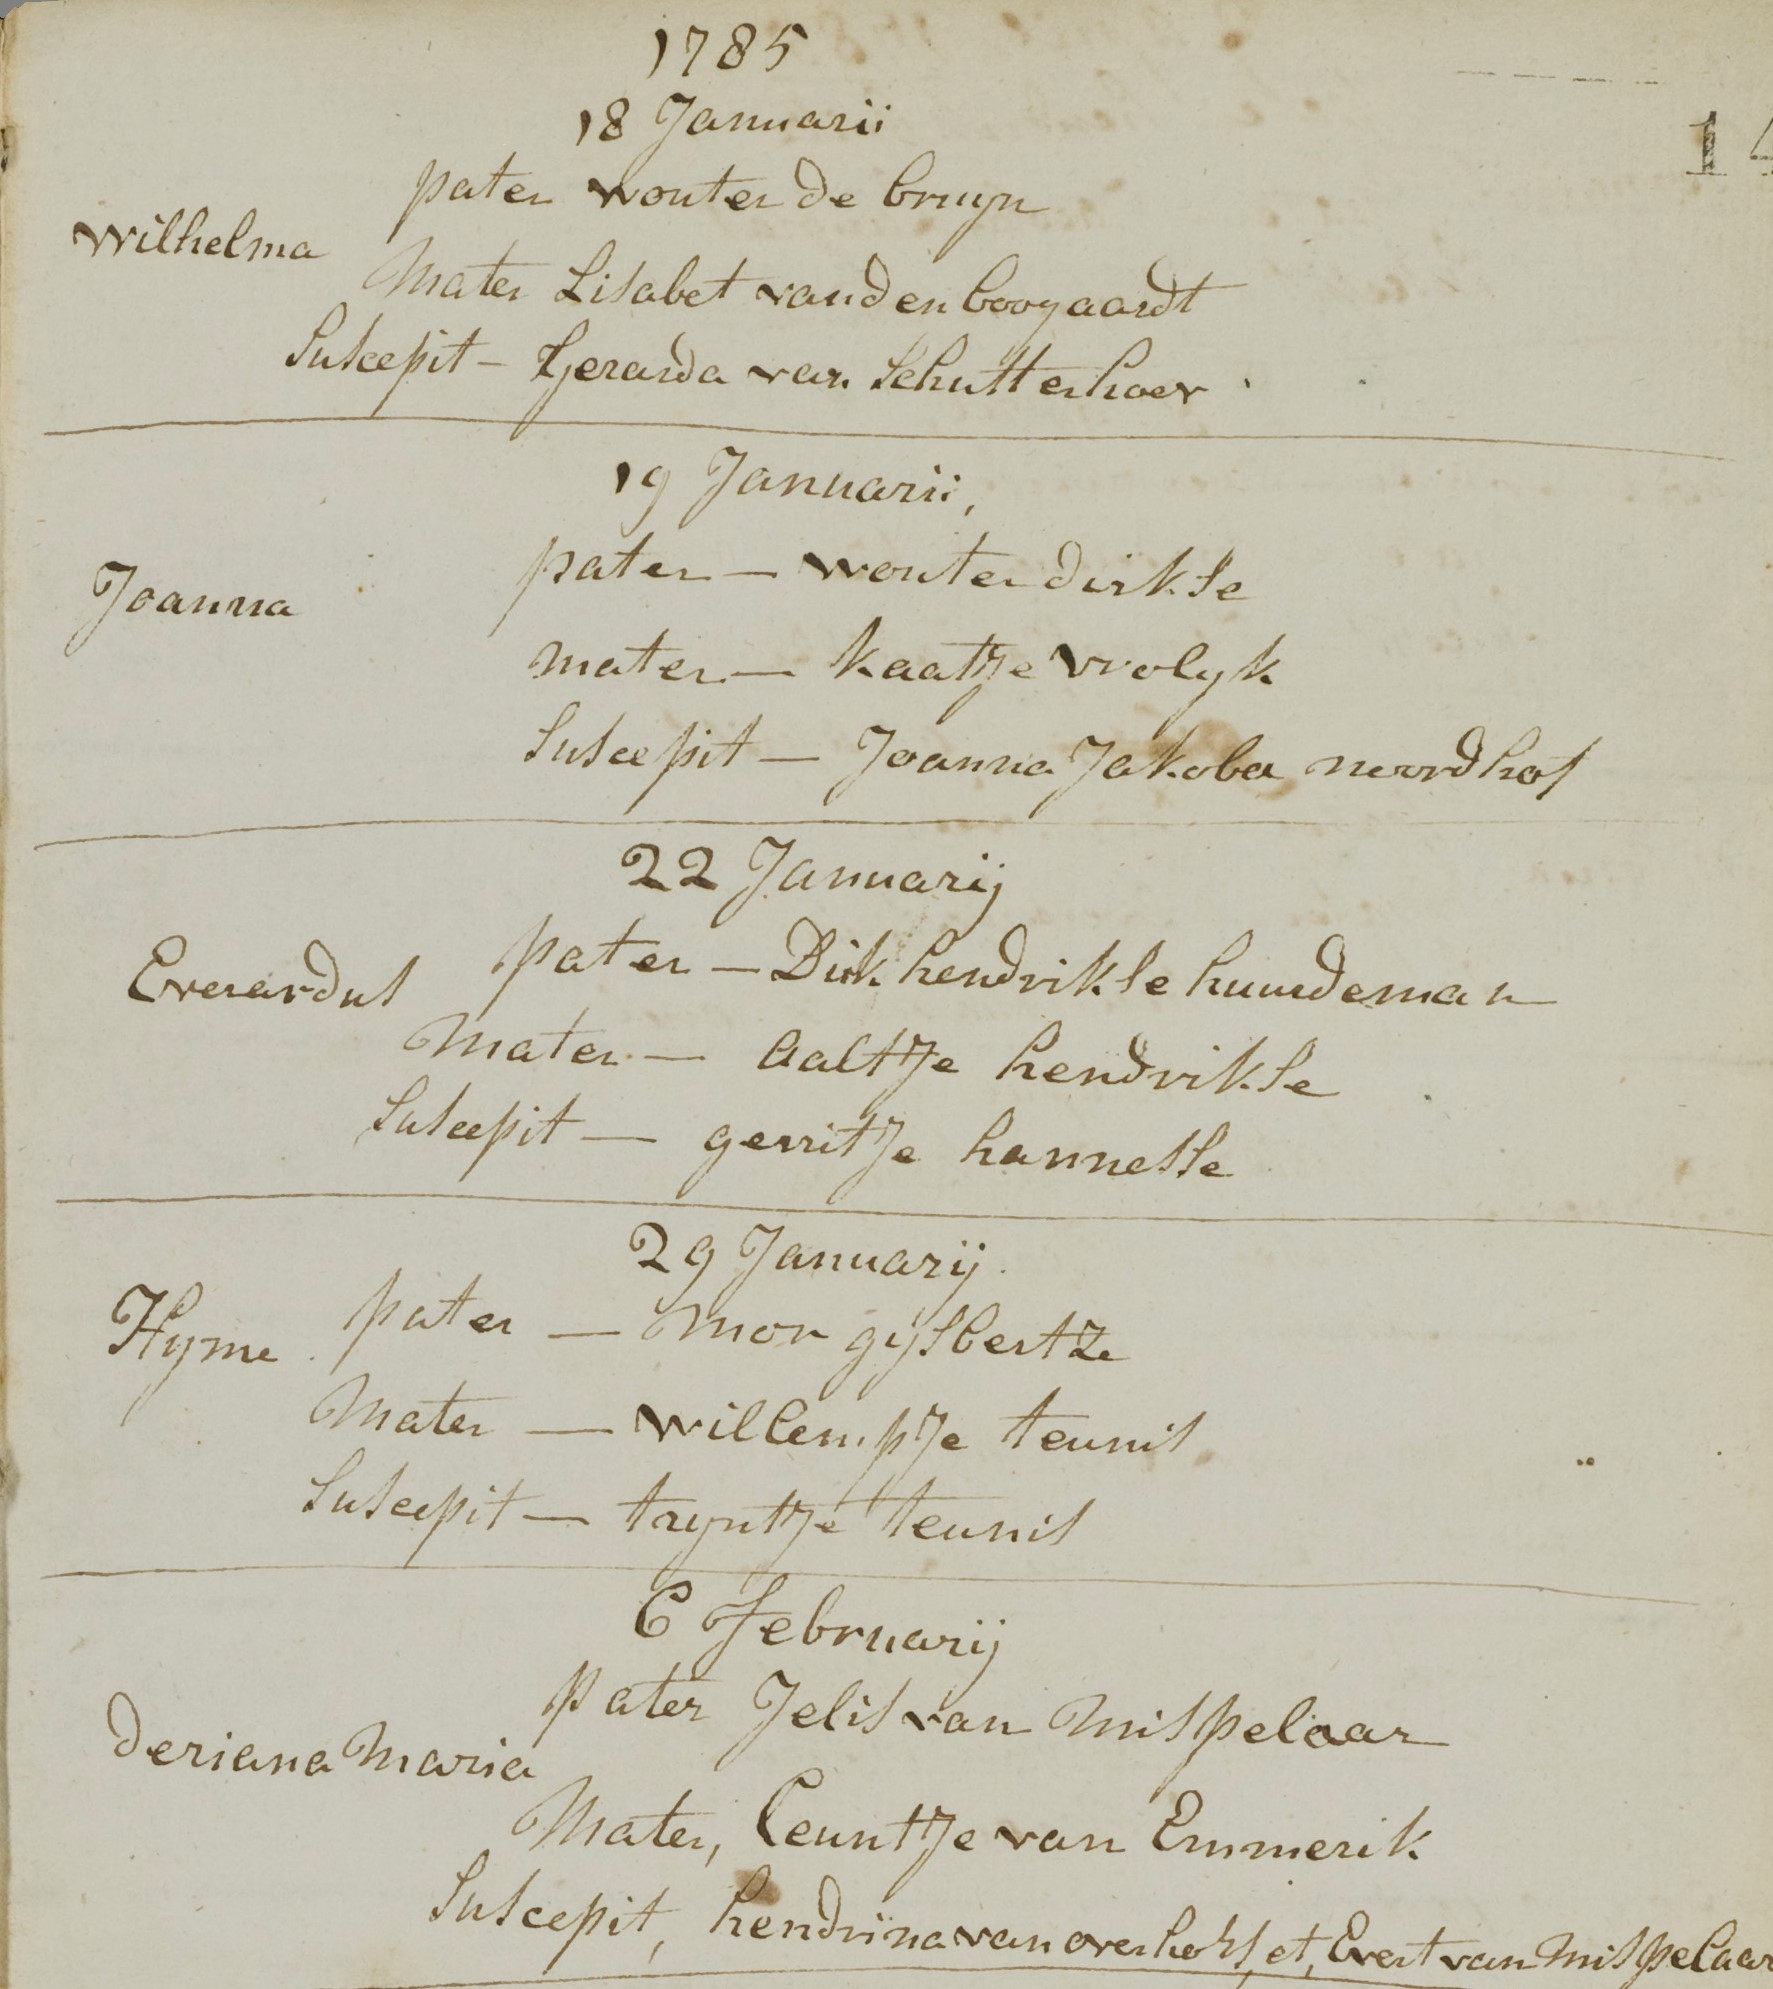 1785
14
18 Januarii
pater wouter de bruyn
Wilhelma
Mater Lisabet vanden boogaardt
Suscepit – Gerarda van Schutterhoev
19 Januarii,
pater — wouter dirkse
Joanna
mater — kaatje vrolyk
Suscepit — Joanna Jakoba noordhof
22 Januarij
Everardus pater — Dirk hendrikse huurdeman
Mater — aaltje hendrikse
Suscepit — gerritje hannesse
29 Januarij
Hyme pater — Mor gysbertze
Mater — willempje teunis
Suscepit — tryntje teunis
6 Februarij
pater Jelis van Mispelaar
Deriana Maria
Mater, Ceuntje van Emmerik
Suscepit, hendrina van overhors, et, Evert van Mispelaar